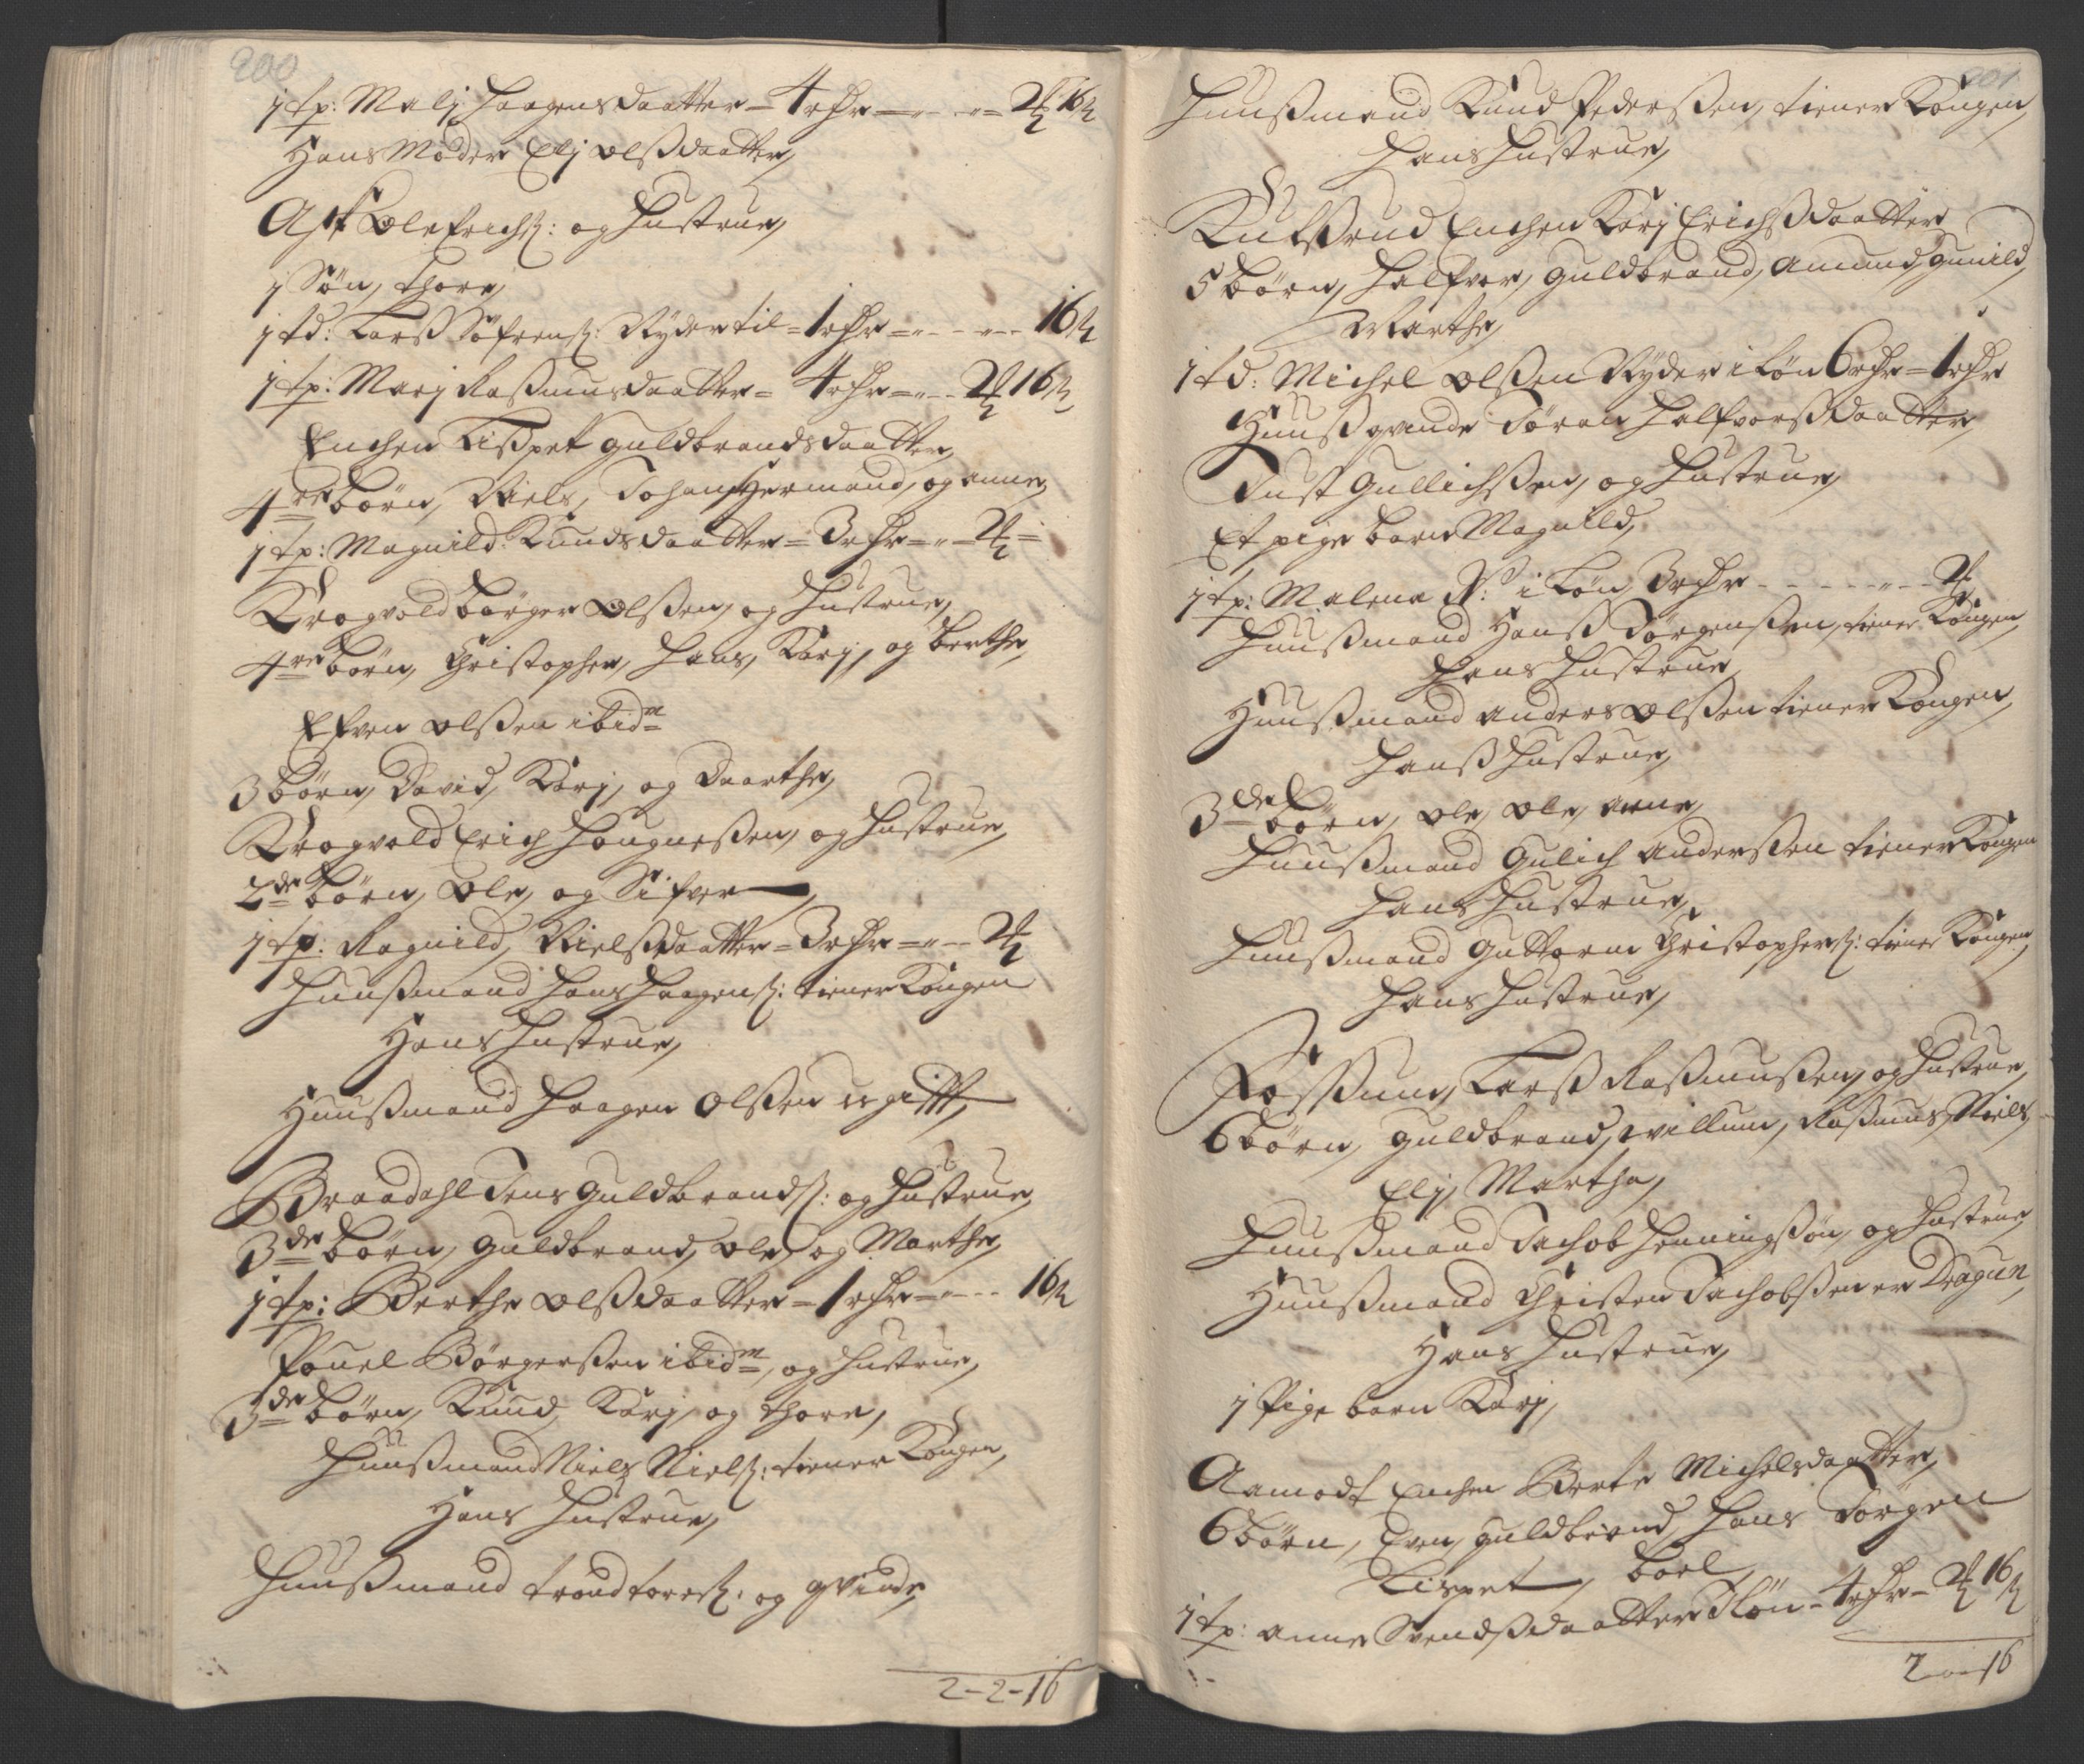 200
1 tp: Malj Haagensdaatter = 4 rdr = " - - " = 2 # 16 ß
Hans Moder Elj Olßdaatter,
Ask Ole Erichs: og Hustrue,
1 Søn, Thore,
1 td: Larß Søfrens: Ryder til = 1 rdr = " - - " - - 16 ß
1 tp: Marj Raßmusdaatter = 4 rdr = " - - 2 # 16 ß
Enchen Lißpet Guldbrandsdaatter,
4re børn, Niels, Johan, Hermand, og Anne,
1 tp: Magnild Knudsdaatter = 3 rdr = " = 2 # =
Kragvold Børger Olßen, og Hustrue,
4re børn, Christopher, Hans, Karj, og Berthe,
Efven Olßen ibidm
3 børn, David, Karj, og Daarthe,
Kragvold Erich Haugneßen, og Hustrue,
2de børn, Ole, og Sifver
1 tp: Ragnild, Nielßdaatter = 3 rdr = " - - 2 #
Huußmand Hans Haagens: tiener Kongen
Hans Hustrue,
Huußmand Haagen Olßen u-gift,
Braadahl Jens Guldbrands: og Hustrue,
3de børn, Guldbrand, Ole, og Marthe,
1 tp: Berthe Olßdaatter = 1 rdr = " - - 16 ß
Pouel Børgerßen ibidm, og Hustrue,
3de børn, Knud, Karj, og Thore,
Huußmand Niels Niels: tiener Kongen,
Hans Hustrue,
Huußmand Trond Tores: og qvinde,
2 - 2 - 16
201
Huußmand Knud Pederßen, tiener Kongen,
Hans Hustrue,
Kulßrud Enchen Karj Erichßdaatter
5 børn, Halfvor, Guldbrand, Amund, Gunild,
Marthe,
1 td: Michel Olßen Ryder i Løn 6 rdr = 1 rdr
Huußqvinde Jøran Halfvorßdaatter,
Just Gullichßen, og Hustrue,
Et pige barn Magnild,
1 tp: Malena N: i Løn 3 rdr - - - - " - - 2 #
Huußmand Hanß Jørgenßen, tiener Kongen,
Hans Hustrue,
Huußmand Anders Olßen tiener Kongen,
Hanß Hustrue,
3de børn, Ole, Ole, Arne,
Huußmand Gulich Anderßen tiener Kongen
Hans Hustrue,
Huußmand Guttorm Christophers: tiener Kongen,
Hans Hustrue,
Foßum, Larß Raßmußen, og Hustrue,
6 børn, Guldbrand, Willum, Raßmus, Niels,
Elj, Martha,
Huußmand Jachob Henningßøn, og Hustrue,
Huußmand Christen Jachobßen er Dragun,
Hans Hustrue,
1 Pige barn Karj,
Aamodt Enchen Berte Michelsdaatter,
6 børn, Even, Guldbrand, Hans Jørgen
Lispet, Boel,
1 tp: Anne Svendßdaatter I Løn = 4 rdr = 2 # 16 ß
2 - " - 16